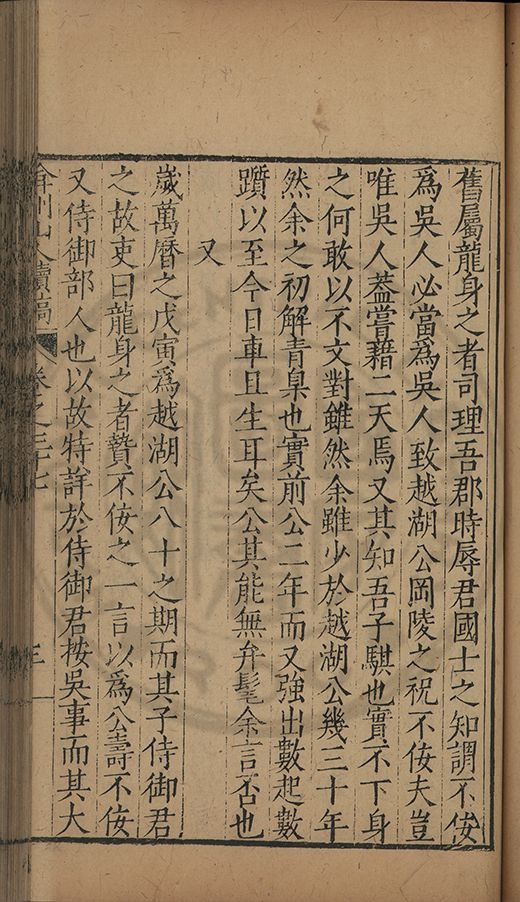 舊屬龍身之者司理吾郡時辱君國士之知謂不佞
爲吳人必當爲吳人致越湖公岡陵之祝不佞夫豈
唯吳人蓋嘗藉二天焉又其知吾子騏也實不下身
之何敢以不文對雖然余雖少於越湖公幾三十年
然余之初解青臬也實前公二年而又強出數起數
躓以至今日車且生耳矣公其能無弁髦余言否也
又
歲萬曆之戊寅爲越湖公八十之期而其子侍御君
之故吏曰龍身之者贄不佞之一言以爲公壽不佞
又侍御部人也以故特詳於侍御君按吳事而其大
弇州山人續稿
卷之三十七
三